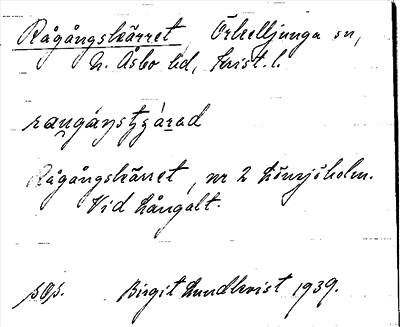 Rågångskärret, Örkelljunga sn,
N. Åsbo hd, Krist. l.
Rågångskärret, nr 2 Lönsjöholm.
Vid Långalt.
sOs. Birgit Lundkvist 1939.